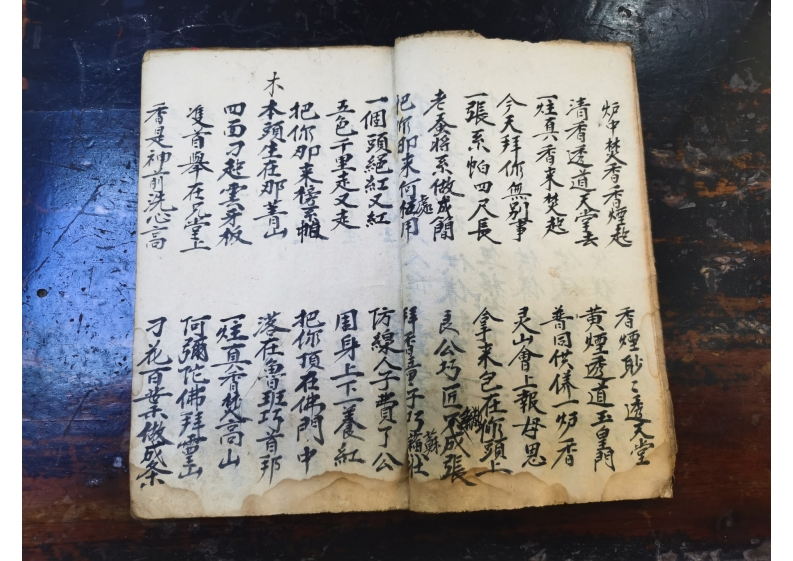 炉中焚香香煙起 香煙渺々透天堂
清香透道天堂去 黄煙透道玉皇門
一炷真香来焚起 普同供儀一炉香
今天拜你無別事 灵山會上報母恩
一張系帕四尺長 拿来包在你頭上
老蚕将系做成蕳 良公巧匠不成張
把你即来何處用 拜香童子巧蘇壮
一個頭絕紅又紅 仿線人子費了公
五色千里走又走 周身上下一養紅
把你即来榜系帕 把你頂在佛門中
木
本頭生在那菁山 落在魯班巧首邦
四面刁起雲牙板 一炷真香焚高山
雙首舉在天堂上 何彌陀佛拜靈山
香是神前洗心高 刁花百葉做成条